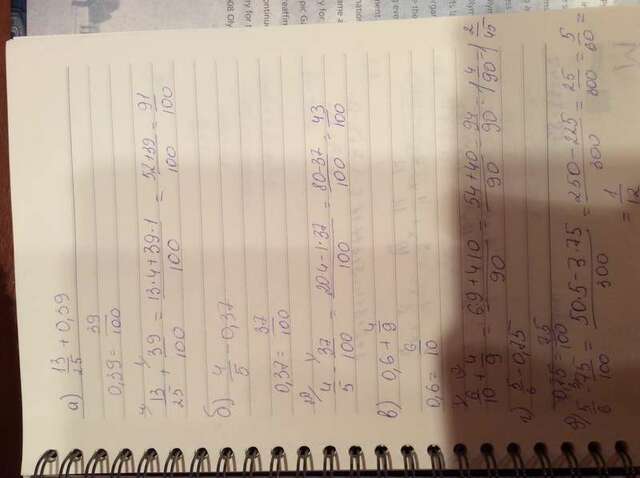 а) 13/25 + 0,39
0,39 = 39/100
13/25 + 39/100 = 13·4+39·1/100 = 52+39/100 = 91/100
б) 4/5 - 0,37
0,37 = 37/100
4/5 - 37/100 = 20·4-1·37/100 = 80-37/100 = 43/100
в) 0,6 + 4/9
0,6 = 6/10
6/10 + 4/9 = 6·9+4·10/90 = 54+40/90 = 94/90 = 1 4/90 = 1 2/45
г) 5/6 - 0,75
0,75 = 75/100
5/6 - 75/100 = 50·5-3·75/300 = 250-225/300 = 25/300 = 5/60 =
= 1/12